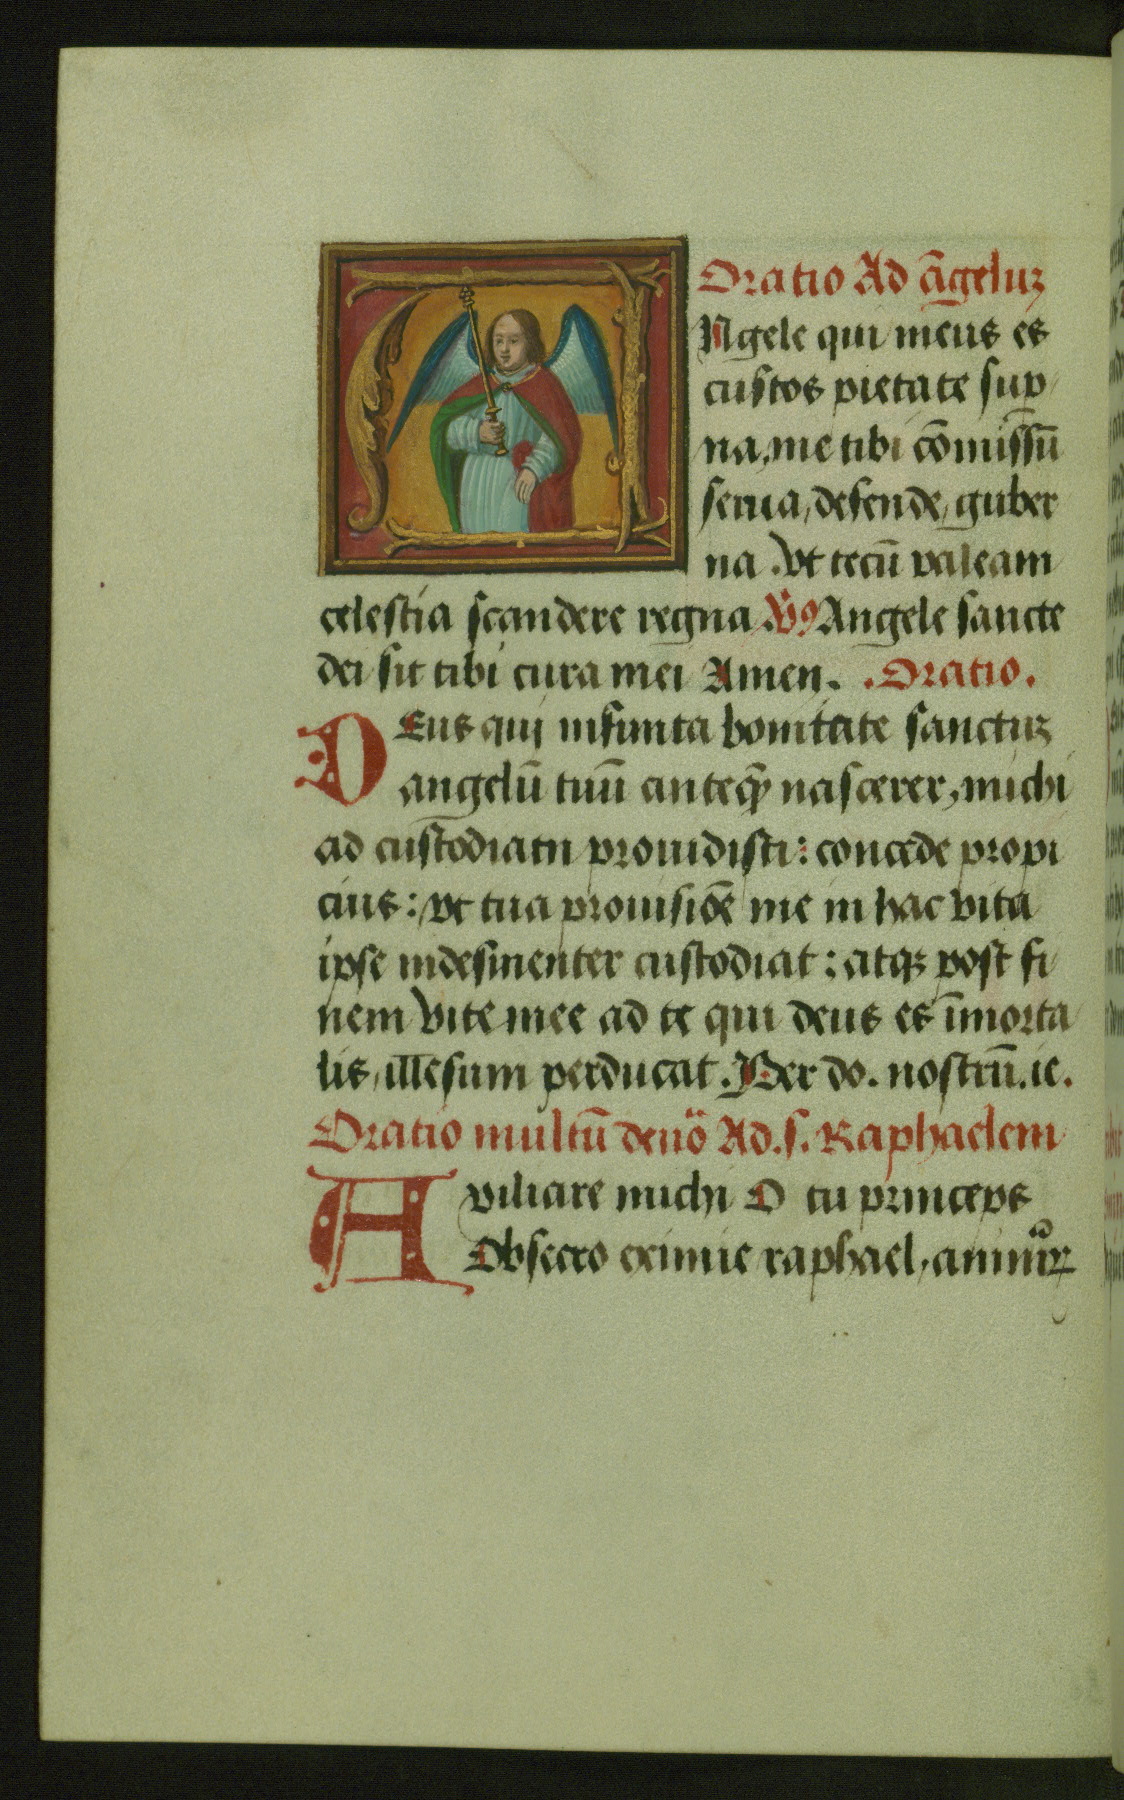 Oratio Ad āgeluꝫ
Ngele qui meus es
custos pietate sup
na, me tibi cōmissū
serua, defende, guber
na. vt tecū valeam
celestia scandere regna Angele sancte
dei sit tibi cura mei Amen. .Oratio.
DEus qui infinita bonitate sanctuꝫ
angelū tuū anteꝙ̄ nascerer, michi
ad custodiam prouidisti: concede propi
cius: vt tua prouisiōe me in hac vita
ipse indesinenter custodiat: atqꝫ post fi
nem vite mee ad te qui deus es īmorta
lis, illesum perducat. Per do. nostrū. ie.
Oratio multū deuō Ad. s. Raphaelem
Axiliare michi O tu princeps
Obsecro eximie raphael, animaꝝ